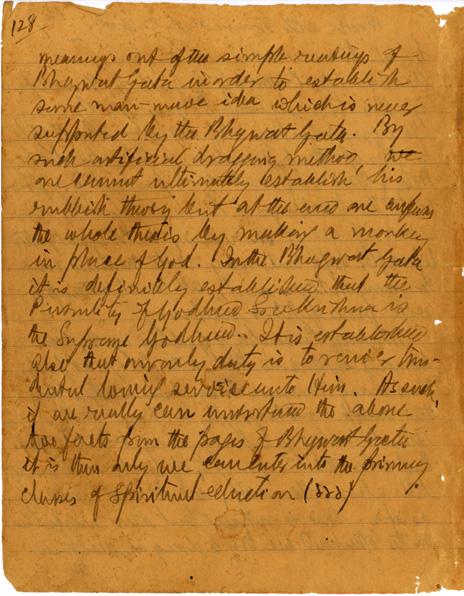 128
meanings out of the simple readings of
Bhagwat Gata in order to establish
some man-made idea which is never
supported by the Bhagwat Gata. By
such artificial dragging method, we
one cannot ultimately establish his
rubbish theory but at the end one
the whole thesis by making a monkey
in place of God. In the Bhagwat Gata
it is definitely established that the
Personality of Godhead Sree Krishna is
the Supreme Godhead. It is established
also that our only duty is to render
loving service unto Him. As such,
if one really can understand the above
two facts from the pages of Bhagwat Geeta
it is then only we can enter into the primary
classes of spiritual eduction